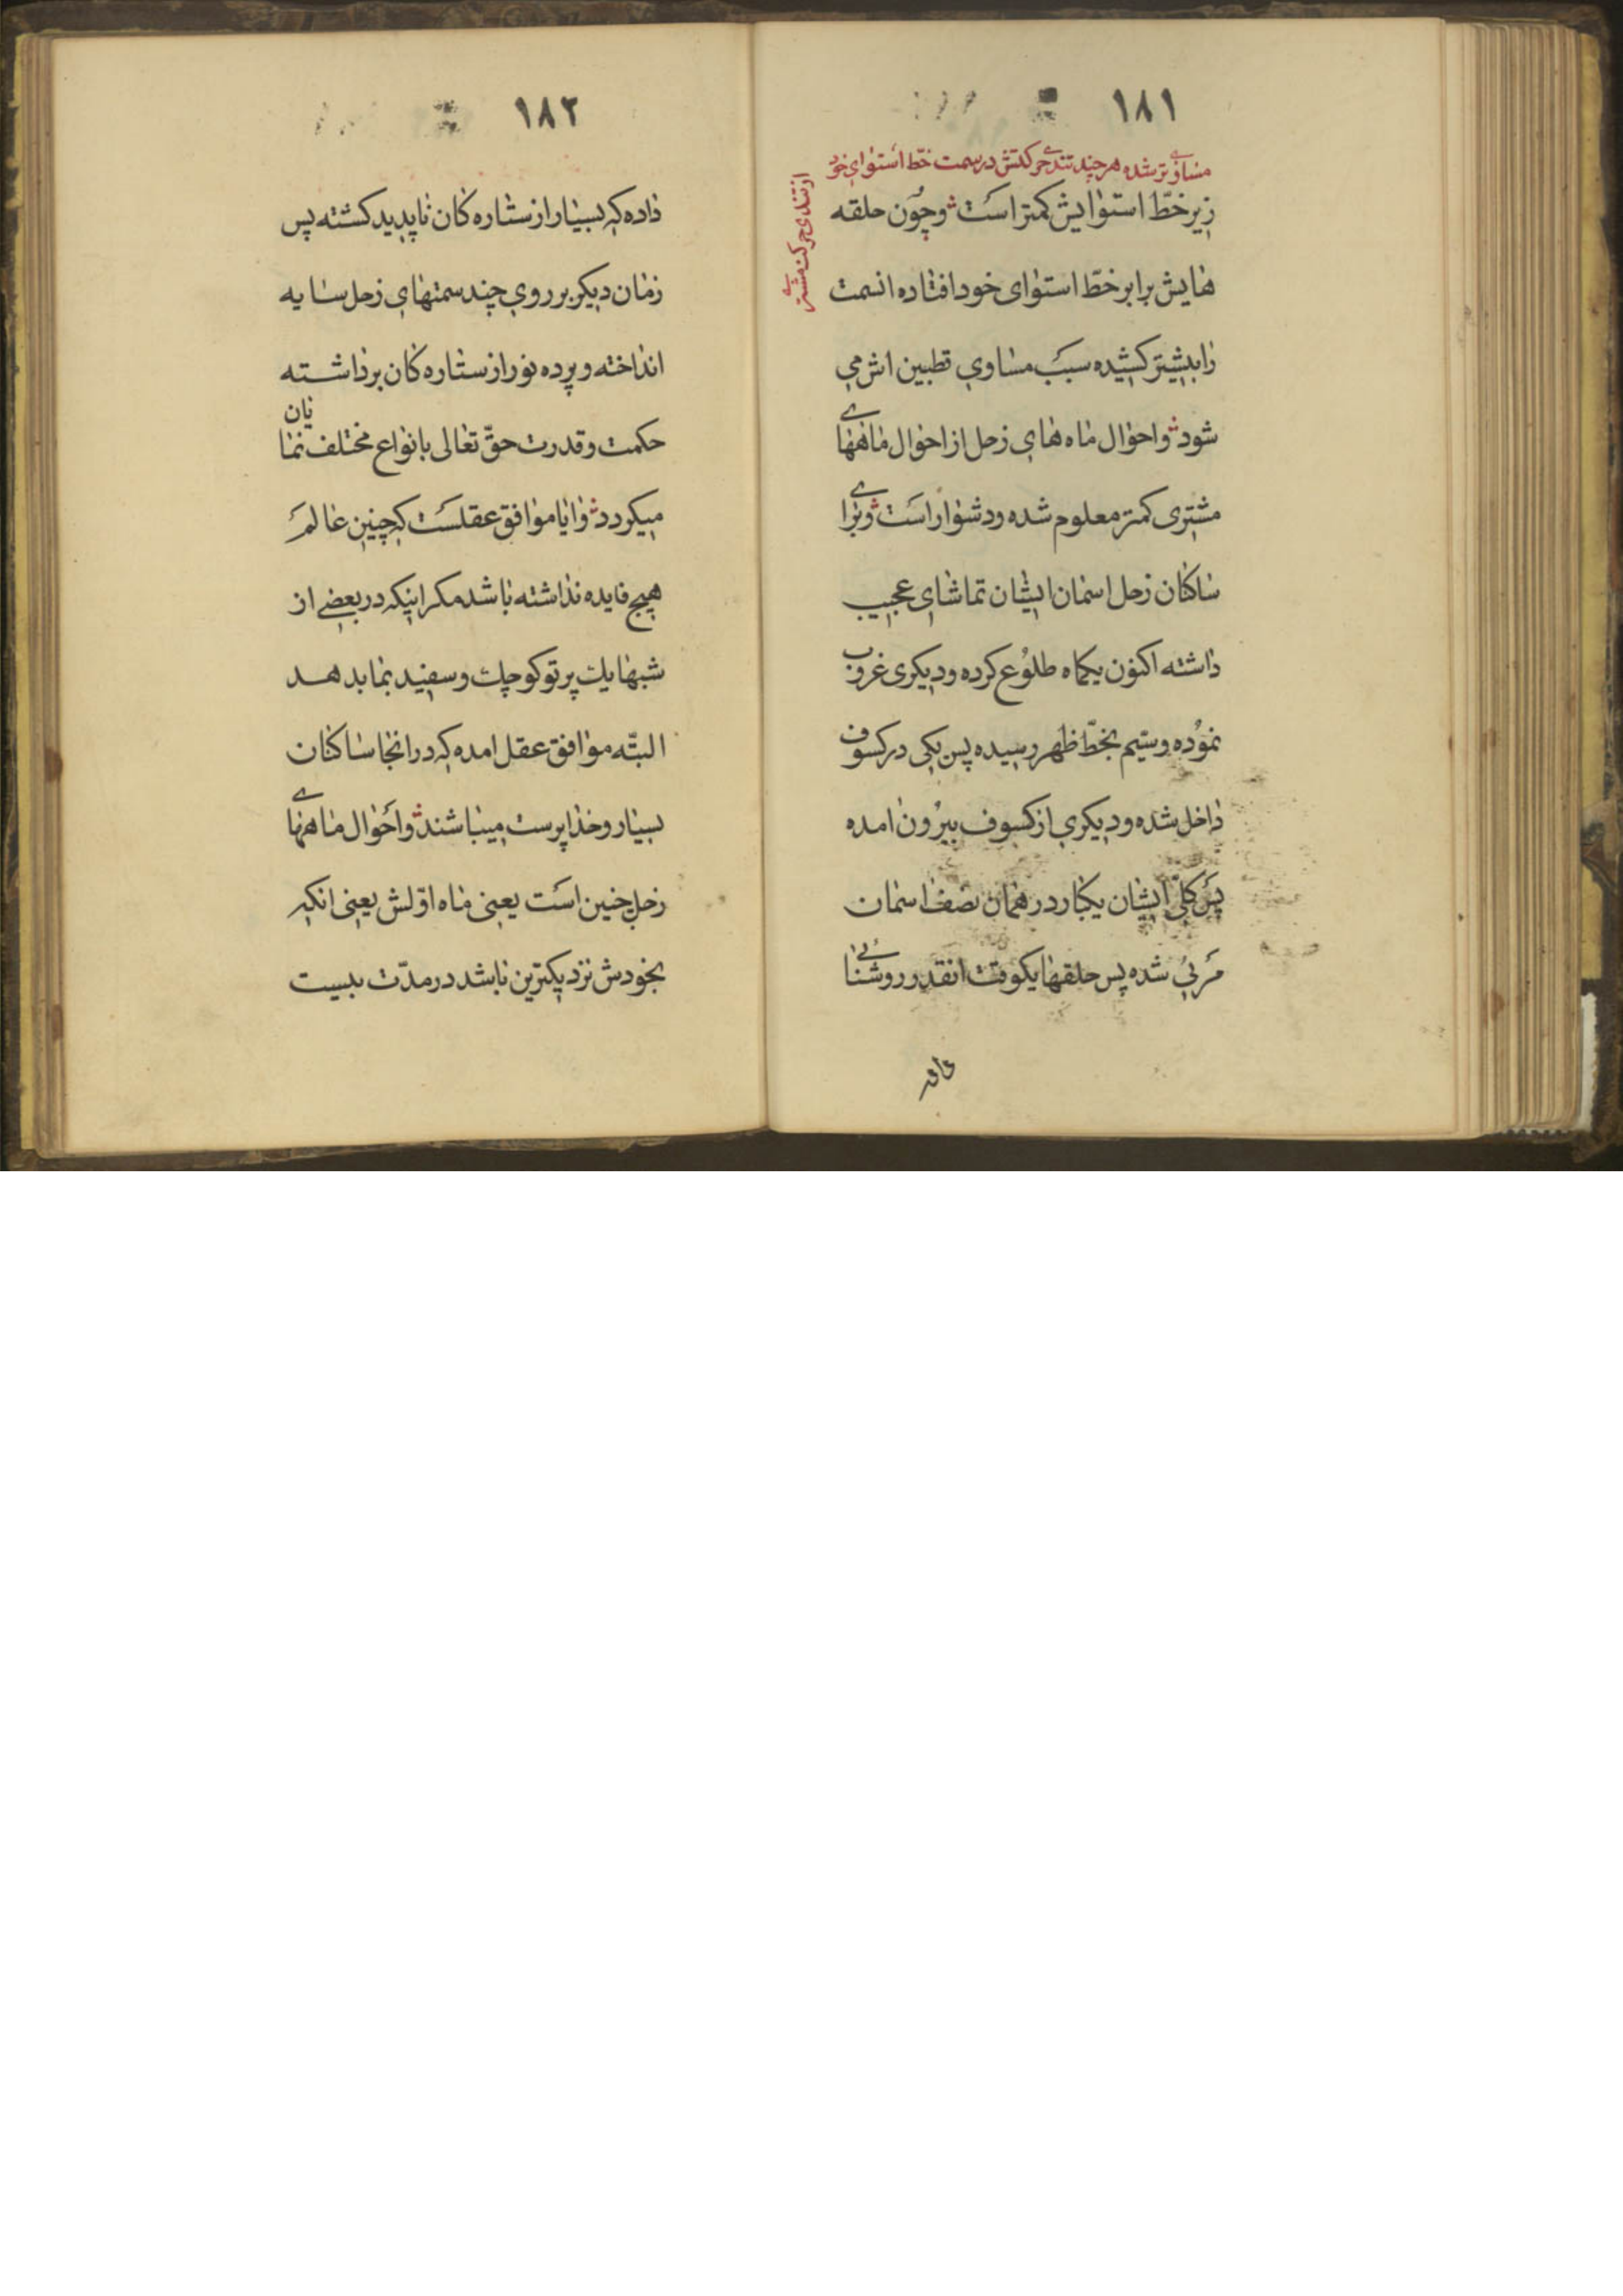 ١٨١
مساوی‌تر شده هر چند تندی حرکتش در سمت خطّ استوای خود
از تندی حرکت مشتری
زیر خطّ استوایش کمتر است و چون حلقه
هایش برابر خطّ استوای خود افتاده انسمت
را بیشتر کشیده سبب مساوی قطبین اش می
شود و احوال ماه های زحل از احوال ماههای
مشتری کمتر معلوم شده و دشوار است و برای
ساکنان زحل اسمان ایشان تماشای عجیب
داشته اکنون یکماه طلوع کرده و دیکری غروب
نموده و سیّم بخطّ ظهر رسیده پس یکی در کسوف
داخل شده و دیکری از کسوف بیرون امده
پس کلّ ایشان یکبار در همان نصف اسمان
مرئی شده پس حلقها یکوقت انقدر روشنائی
داده
١٨٢
داده که بسیار از ستاره کان ناپدید کشته پس
زمان دیکر بر روی چند سمتهای زحل سایه
انداخته و پرده نور از ستاره کان برداشته
حکمت و قدرت حقّ تعالی بانواع مختلف نمایان
میکردد و ایا موافق عقلست که چنین عالم
هیچ فایده نداشته باشد مکر اینکه در بعضی از
شبها یک پرتو کوچک و سفید بما بدهد
البتّه موافق عقل امده که در انجا ساکنان
بسیار و خداپرست میباشند و احوال ماههای
زحل چنین است یعنی ماه اوّلش یعنی انکه
بخودش نزدیکترین باشد در مدّت بیست